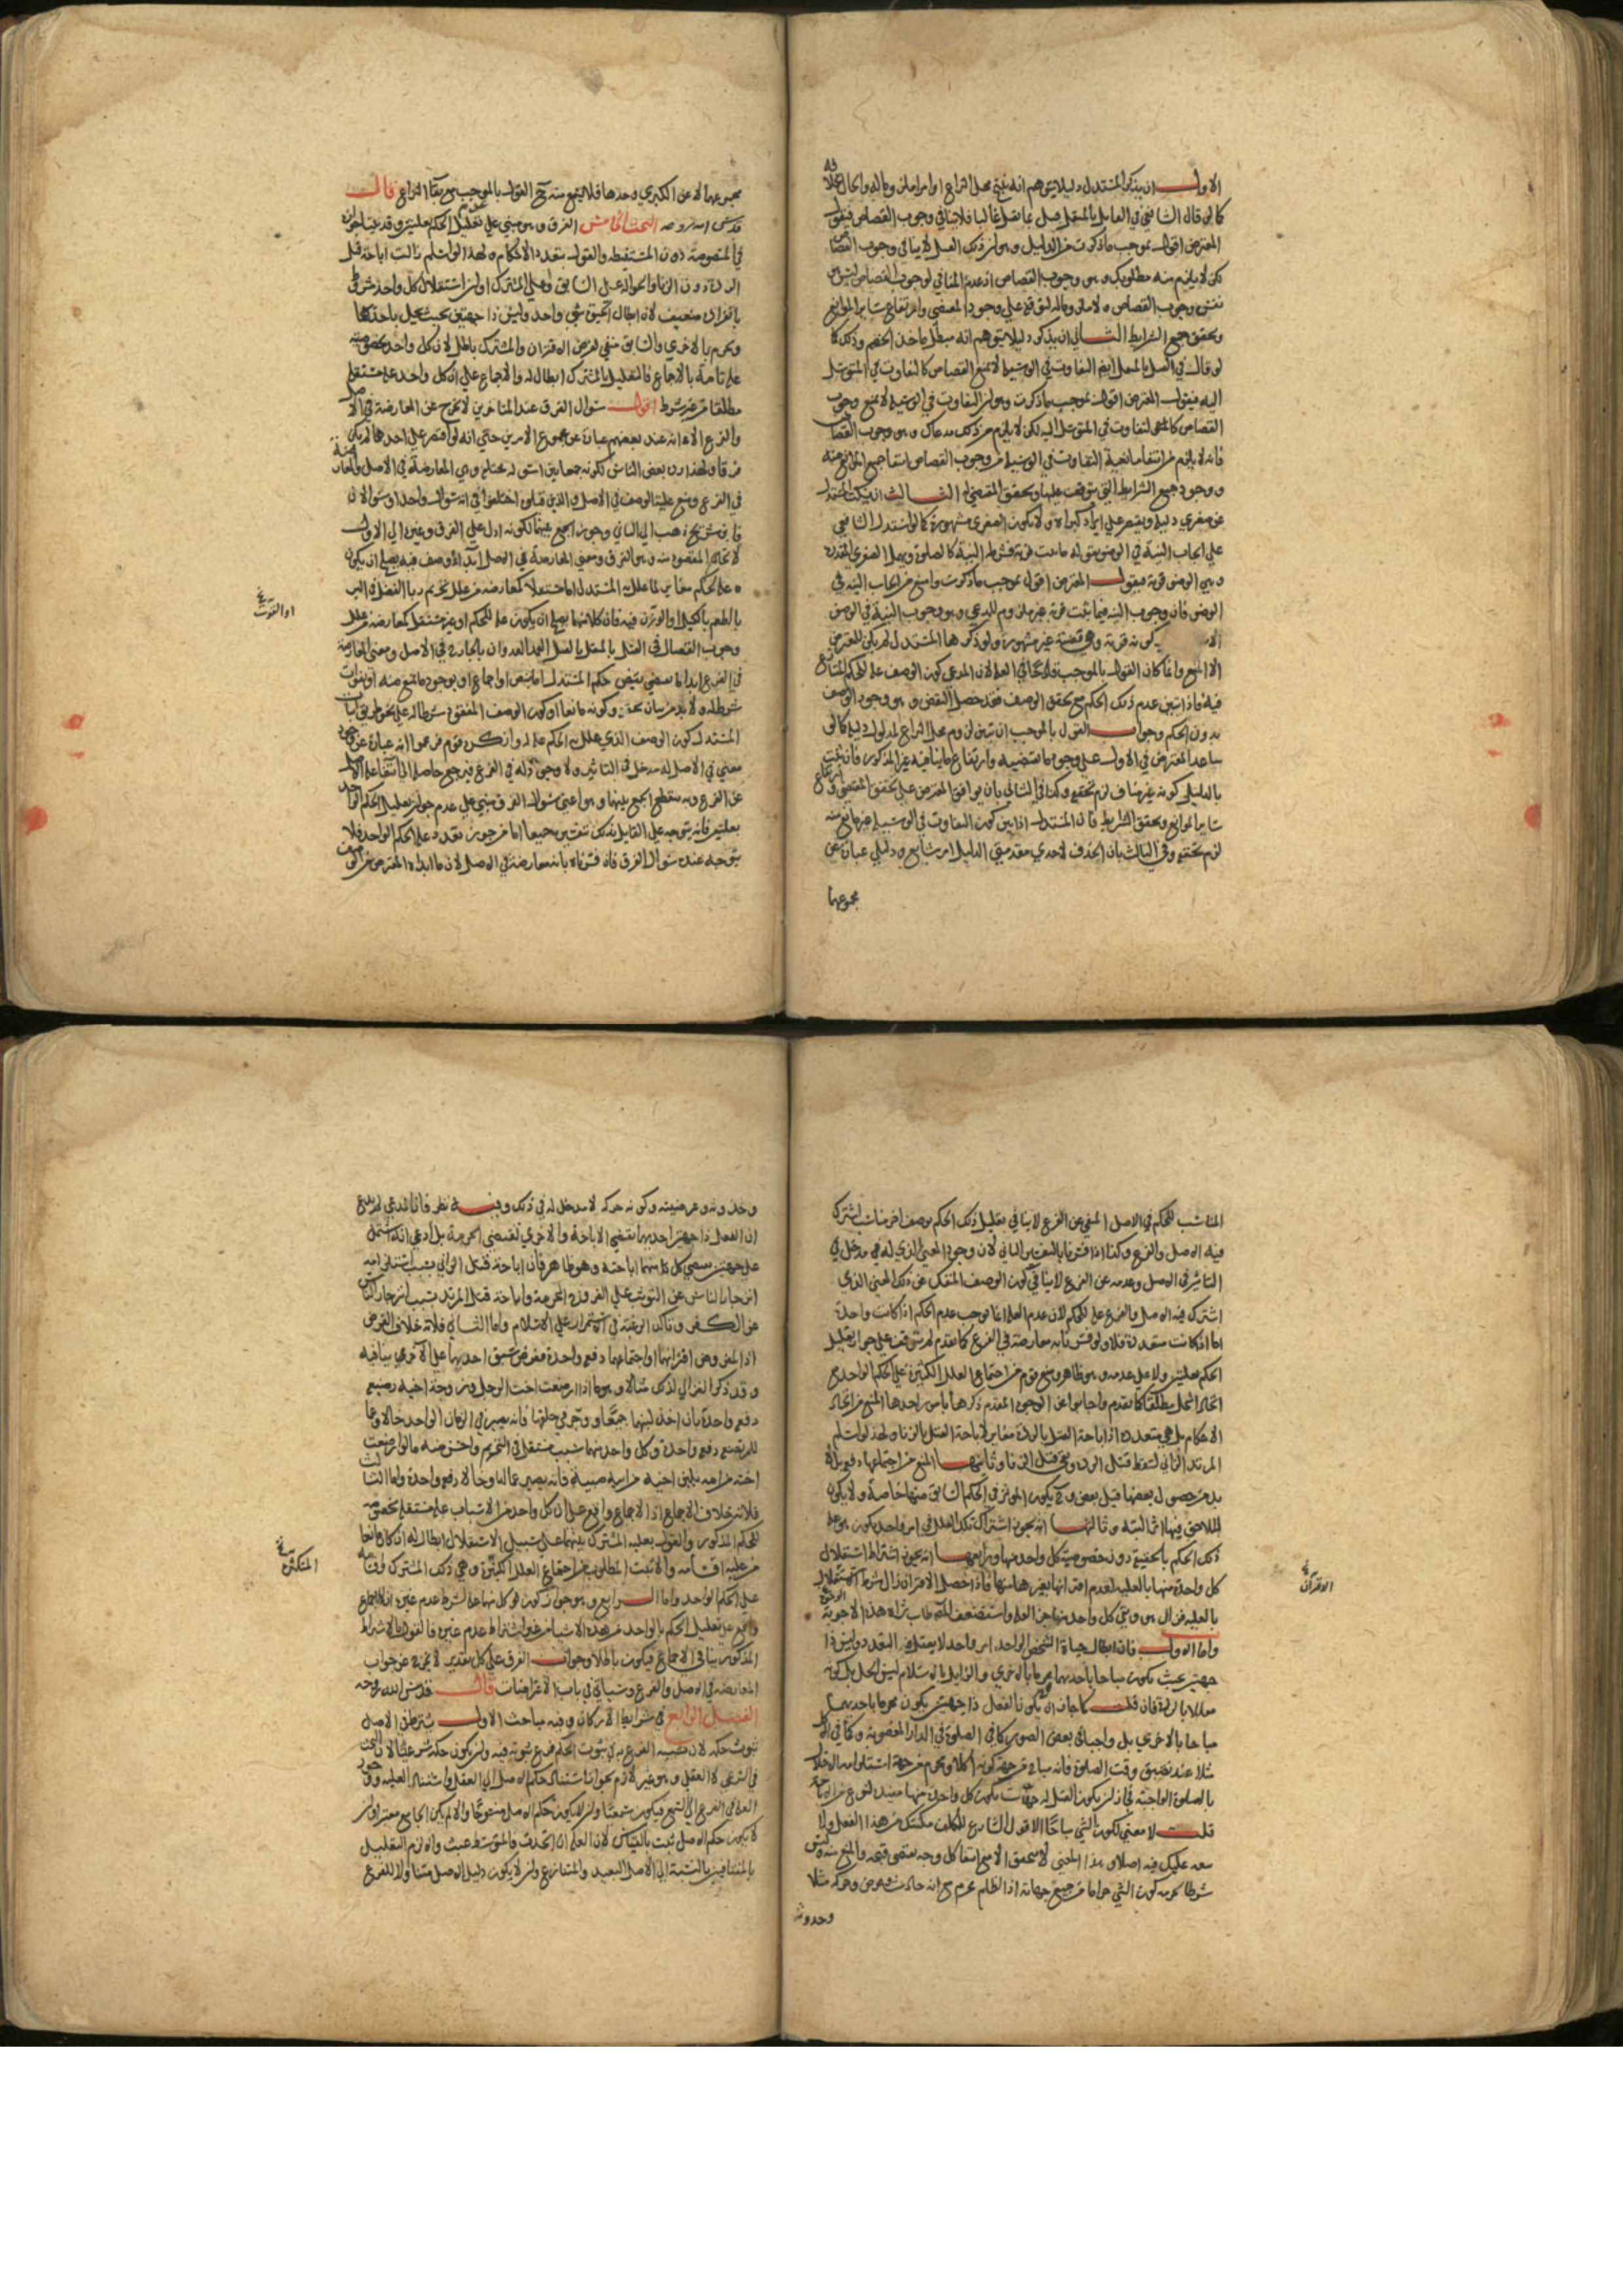 الاول ان يذكر المستدل دليلا يتوهم انه ينتج محل النزاع او امرا ملزوما له والحال بخلافه
كما لو قال الشافعي في القتل بالمثقل قتل بما يقتل غالبا فلا ينافي وجوب القصاص فيقول
المعترض اقول بموجب ما ذكرت من الدليل وهو ان ذلك القتل لا ينافي وجوب القصاص
لكن لا يلزم منه مطلوبك وهو وجوب القصاص اذ عدم المنافي لوجوب القصاص ليس
نفس وجوب القصاص ولا ملزوما له لتوقفه على وجود المقتضي وارتفاع سائر الموانع
وتحقق جميع الشرايط الثاني ان يذكر دليلا يتوهم انه مبطل ماخذ الخصم وذلك كما
لو قال في القتل بالمثقل ايضا التفاوت في الوسيلة لا يمنع القصاص كالتفاوت في المتوسل
اليه فيقول المعترض اقول بموجب ما ذكرت وهو ان التفاوت في الوسيلة لا يمنع وجوب
القصاص كالتفاوت في المتوسل اليه لكن لا يلزم من ذلك مدعاك وهو وجوب القصاص
فانه لا يلزم من انتفاء مانعية التفاوت في الوسيلة من وجوب القصاص انتفا جميع الموانع منه
ووجود جميع الشرايط التي يتوقف عليها وتحقق المقتضي له الثالث ان يسكت المستدل
عن صغرى دليله ويقتصر على ايراد كبراه ولا يكون الصغرى مشهورة كما لو استدل الشافعي
على ايجاب النية في الوضوء بقوله ما ثبت قربة فشرطه النية كالصلوة ويهمل الصغرى المقدرة
وهي الوضوء قربة فيقول المعترض اقول بموجب ما ذكرت وامنع من ايجاب النية في
الوضوء فان وجوب النية فيما يثبت قربة غير ملزوم للمدعي وهو وجوب النية في الوضوء
كونه قربة وهي قضية غير مشهورة ولو ذكرها المستدل لم يكن للمعترض
الا المنع وانما كان القول بالموجب قادحا في العلة لان المدعي كون الوصف علة للحكم المتنازع
فيه فاذا تبين عدم ذلك الحكم مع تحقق الوصف فقد حصل النقض وهو وجود الوصف
بدون الحكم وجواب القول بالموجب ان تبين لزوم محل النزاع لمدلول دليله كما لو
ساعد المعترض في الاول على وجود ما يقتضيه وارتفاع ما ينافيه غير المذكور فان ثبت
بالدليل كونه غير مناف لزم تحققه وكذا في الثاني بان يوافق المعترض على تحقق المقتضي وارتفاع
سائر الموانع وتحقق الشرايط فان المستدل اذا بين كون التفاوت في الوسيلة غير مانع منه
لزم تحققه وفي الثالث بان الحذف لاحدى مقدمتي الدليل امر شايع ودليلي عبارة عن
مجموعهما
مجموعهما لا عن الكبرى وحدها فلا يتجه منه ح القول بالموجب مع بقا النزاع قال
قدس الله روحه البحث الخامس الفرق وهو مبني على تعليل الحكم بعلتين وقد بينا جوازه
في المنصوصة دون المستنبطة والقول بتعدد الاحكام ولهذا لو اسلم زالت اباحة قتل
الردة دون الزنا والحوالة على السابق وعلى المشترك او ان استقلال كل واحد شرطه
بانفراده ضعيف لان ابطال الحيوة شي واحد وليس ذا جهتين بحيث يحل باحدهما
ويحرم بالاخرى والسابق منفي لفرض الاقتران والمشترك باطل لان كل واحد بخصوصيته
علة تامة بالاجماع فالتعليل بالمشترك ابطال له والاجماع على ان كل واحد علة مستقلة
مطلقا من غير شرط اقول سؤال الفرق عند المتاخرين لا يخرج عن المعارضة في الاصل
والفرع الا انه عند بعضهم عبارة عن مجموع الامرين حتى انه لو اقتصر على احدهما لم يكن
فرقا ولهذا رده بعض الناس لكونه جمعا بين اسولة مختلفة وهي المعارضة في الاصل والمعارضة
في الفرع ومنع علية الوصف في الاصل والذين قبلوه اختلفوا في انه سؤال واحد او سؤالان
فابن شريح ذهب الى الثاني وجوز الجمع بينهما لكونه ادل على الفرق وغيره الى الاول
لاتحاد المقصود منه وهو الفرق ومعنى المعارضة في الاصل ابداء وصف فيه يصلح ان يكون
علة للحكم مغاير لما علل به المستدل اما مستقلا كمعارضة من علل تحريم ربا الفضل في البر
بالطعم بالكيل او الوزن فيه فان كلا منها يصلح ان يكون علة للحكم او غير مستقل كمعارضة من علل
او القوت
وجوب القصاص في القتل بالمثقل بالقتل العمد العدوان بالجارح في الاصل ومعنى المعارضة
في الفرع ابداء ما يقتضي نقيض حكم المستدل اما بنص او اجماع او بوجود مانع منه او بفوات
شرط له ولا بد من بيان تحققه وكونه مانعا او كون الوصف المفقود شرطا له على نحو طريق اثبات
المستدل كون الوصف الذي علل به الحكم علة له وانكره قوم زعموا انه عبارة عن وجود
معنى في الاصل له مدخل في التاثير ولا وجود له في الفرع فيرجع حاصله الى انتفاء علة الاصل
عن الفرع وبه ينقطع الجمع بينهما وهو اعني سؤال الفرق مبني على عدم جواز تعليل الحكم الواحد
بعلتين فانه يتوجه على القايل بذلك بتفسيريه جميعا اما من جوز تعدد علة الحكم الواحد فلا
يتوجه عنده سؤال الفرق فان فسرناه بالمعارضة في الاصل لان ما ابداه المعترض من الوصف
المناسب للحكم في الاصل المنفي عن الفرع لا ينافي تعليل ذلك الحكم بوصف اخر مناسب اشترك
فيه الاصل والفرع وكذا اذا فسرناه بالتفسير الثاني لان وجود المعنى الذي له في مدخل في
التاثير في الاصل وعدمه عن الفرع لا ينافي كون الوصف المنفك عن ذلك المعنى الذي
اشترك فيه الاصل والفرع علة للحكم لان عدم العلة انما يوجب عدم الحكم اذا كانت واحدة
اما اذا كانت متعددة فلا ولو فسرنا به معارضة في الفرع كما تقدم لم يتوقف على جواز تعليل
الحكم بعلتين ولا على عدمه وهو ظاهر ومنع قوم من اجتماع العلل الكثيرة على الحكم الواحد مع
اتحاد المحل مطلقا كما تقدم واجابوا عن الوجوه المقدم ذكرها بامور احدها المنع من اتحاد
الاحكام بل هي متعددة اذ اباحة القتل بالردة مغاير لاباحة القتل بالزنا ولهذا لو اسلم
المرتد الزاني لسقط قتل الردة وبقي قتل الزنا وثانيها المنع من اجتماعها دفعة بل لا
بد من حصول بعضها قبل بعض وح يكون المؤثر في الحكم السابق منها خاصة ولا يكون
للاحق فيها اثر البتة وثالثها انه يجوز اشتراك تلك العلل في امر واحد يكون هو علة
ذلك الحكم بالحقيقة دون خصوصية كل واحد منها ورابعها انه يجوز اشتراط استقلال
كل واحدة منها بالعلية لعدم اقترانها بغيرها منها فاذا حصل الاقتران زال شرط الاستقلال
الاقتران
بالعلية فزال هو وبقي كل واحد منها جزء العلة واستضعف المصنف طاب ثراه هذه الاجوبة الاربعة
واما الاول فان ابطال حياة الشخص الواحد امر واحد لا يعقل فيه التعدد وليس ذا
جهتين بحيث يكون مباحا باحديهما محرما بالاخرى والزايل بالاسلام ليس الحل بل كونه
معللا بالردة فان قلت كما جاز ان يكون الفعل ذا جهتين يكون محرما باحديهما
مباحا بالاخرى بل واجبا في بعض الصور كما في الصلوة في الدار المغصوبة وكما في الاكل
مثلا عند تضيق وقت الصلوة فانه مباح من جهة كونه اكلا ومحرم من جهة استلزامه الاخلال
بالصلوة الواجبة فجاز ان يكون القتل له جهات يكون كل واحد منها مفيدا لنوع من الاباحة
قلت لا معنى لكون الشي مباحا الا قول الشارع للمكلف مكنتك من هذا الفعل ولا
تبعة عليك فيه اصلا وهذا المعنى لا يتحقق الا مع انتفا كل وجه يقتضي قبحه والمنع منه وليس
شرط حرمة كون الشي حراما من جميع جهاته اذ الظلم محرم مع انه حادث وعرض وحركة مثلا
وحدوثه
وحدوثه وعرضيته وكونه حركة لا مدخل له في ذلك وفيه نظر فان المدعي لم يدع
ان الفعل ذا جهتين احديهما تقتضي الاباحة والاخرى تقتضي الحرمة بل ادعى انه اشتمل
على جهتين يقتضي كل منهما اباحته وهو ظاهر فان اباحة قتل الزاني بسبب استلزامه
انزجار الناس عن التوثب على الفروج المحرمة واباحة قتل المرتد بسبب انزجار الناس
عن الكفر وتاكد الرغبة في الاستمرار على الاسلام واما الثاني فلانه خلاف الفرض
اذ المفروض اقترانهما واجتماعهما دفعة واحدة ففرض سبق احديهما على الاخرى ينافيه
وقد ذكر الغزالي لذلك مثالا وهو ما اذا ارضعت اخت الرجل وزوجة اخيه رضيعه
دفعة واحدة بان اخذ لبنهما جميعا ووجر في حلقها فانه يصير في الزمان الواحد خالا وعما
للمرتضعة دفعة واحدة وكل واحد منهما سبب مستقل في التحريم واخر منه ما لو ارضعت
اخته من امه بلبن اخيه من ابيه صبية فانه يصير عما لها وخالا دفعة واحدة واما الثالث
فلانه خلاف الاجماع اذ الاجماع واقع على ان كل واحد من الاسباب علة مستقلة بخصوصيته
للحكم المذكور والقول بعلية المشترك بينهما على سبيل الاستقلال ابطال له ان كان مانعا
من علية اقسامه والا ثبت المطلوب من اجتماع العلل الكثيرة وهي ذلك المشترك واقسامه
المتكثرة
على الحكم الواحد واما الرابع وهو جواز كون كل منهما علة لشرط عدم غيره فلان الاجماع
واقع على تعليل الحكم بالواحد من هذه الاشيا من غير اشتراط عدم غيره فالقول بالاشتراط
المذكور ينافي الاجماع فيكون باطلا وجواب الفرق على كل تقدير لا يخرج عن جواب
المعارضة في الاصل والفرع وسياتي في باب الاعتراضات قال قدس الله روحه
الفصل الرابع في شرايط الاركان وفيه مباحث الاول يشترط في الاصل
ثبوت حكمه لان تشبيه الفرع به في ثبوت الحكم فرع ثبوته فيه وان يكون حكمه شرعيا لان البحث
في الشرعي لا العقلي وهو غير لازم بجواز استناد حكم الاصل الى العقل واستناد العلية ووجود
العلة في الفرع الى السمع فيكون سمعيا وان لا يكون حكم الاصل منسوخا والا لم يكن الجامع معتبرا وان
لا يكون حكم الاصل ثبت بالقياس لان العلة ان اتحدت فالمتوسط عبث والا لزم التعليل
بالمتنافيين بالنسبة الى الاصل البعيد والمتنازع وان لا يكون دليل الاصل متناولا للفرع